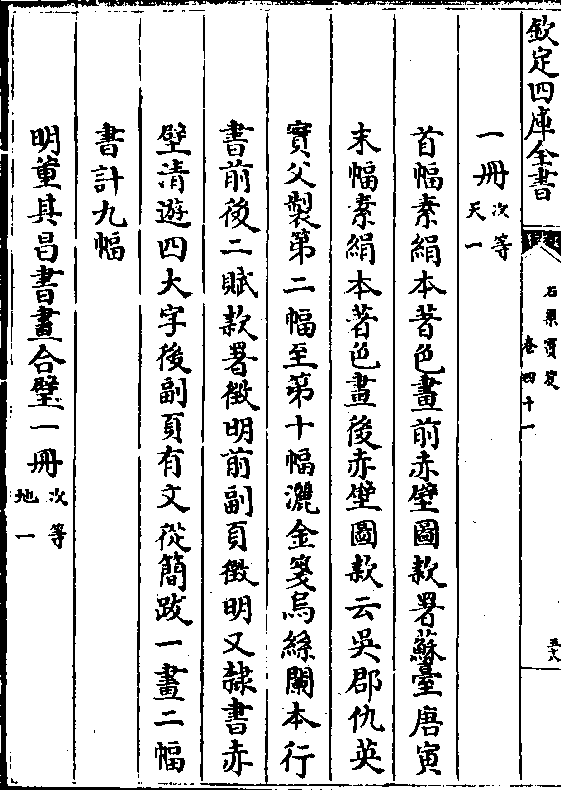 欽定四庫全書
石渠寶笈
卷四十一
五十八
一冊次等
天一
首幅素絹本著色畫前赤壁圖款署蘇臺唐寅
末幅素絹本著色畫後赤壁圖款云吳郡仇英
實父製第二幅至第十幅灑金箋烏絲闌本行
書前後二賦款署徵明前副頁徵明又隸書赤
壁清遊四大字後副頁有文從簡跋一畫二幅
書計九幅
明董其昌書畫合璧一冊次等
地一